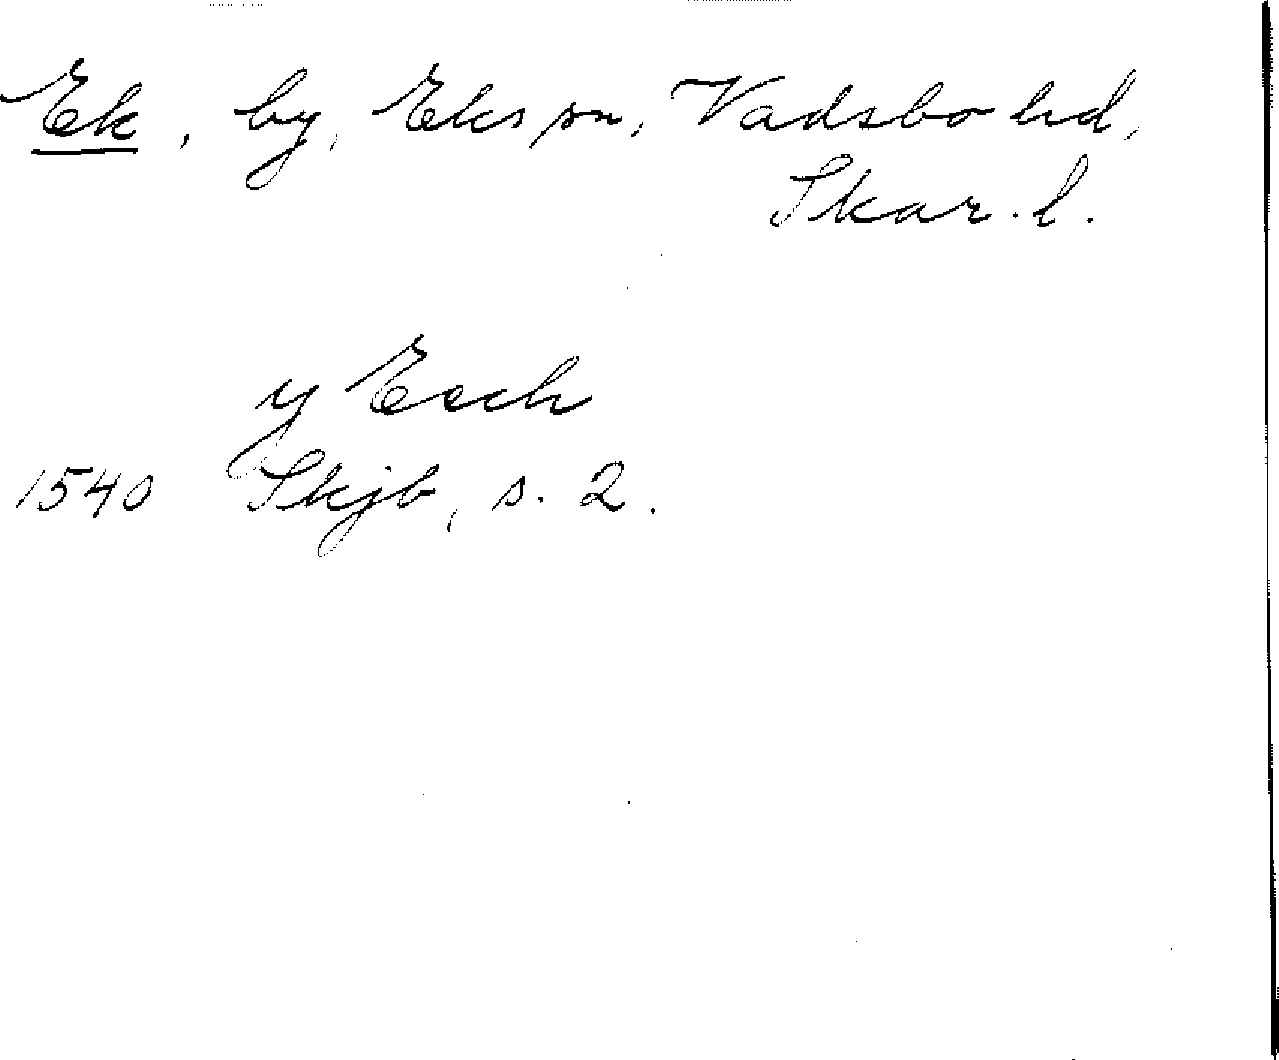 Ek, by, Eks sn, Vadsbo hd,
Skar. l.
y Eech
1540 Skjb, s. 2.